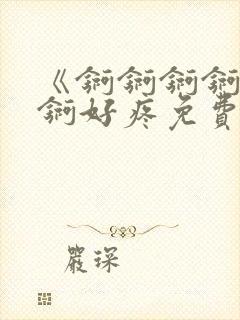 《锕锕锕锕
锕好疼免費
嚴琛